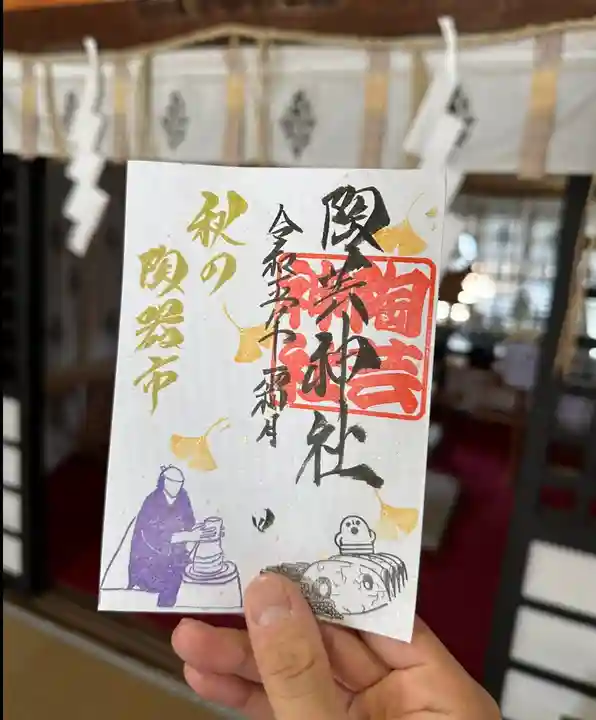 陶芸神社
令和五年 霜月
日
秋の
陶器市
陶芸
神社